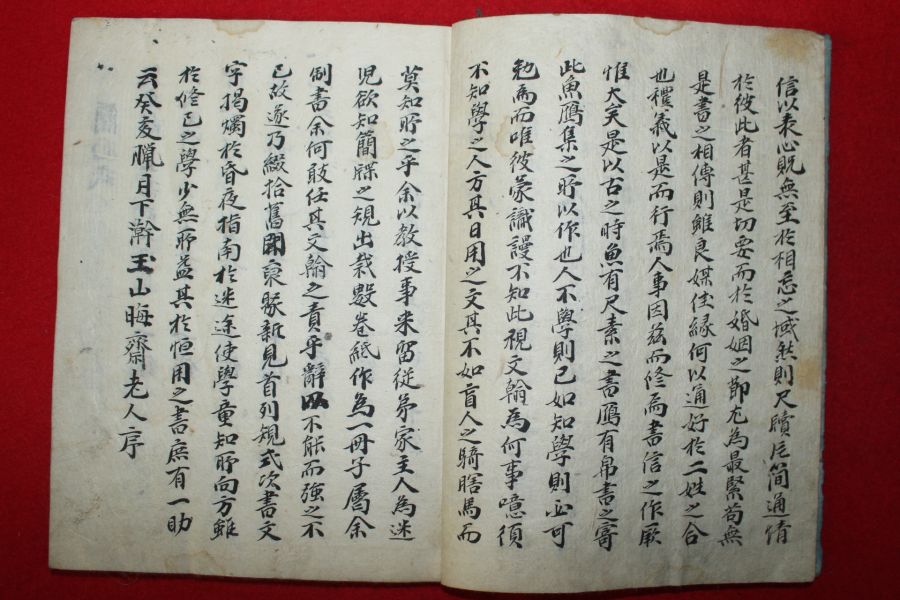 信以表心貺無至於相忘之域然則尺牘片簡通情
於彼此者甚是切要而於婚姻之節尤為最緊苟無
是書之相傳則雖良媒佳緣何以通好於二姓之合
也禮義以是而行焉人事因玆而修焉書信之作厥
惟大矣是以古之時魚有尺素之書鴈有帛書之寄
此魚鴈集之所以作也人不學則已如知學則必可
勉焉而唯彼蒙識謾不知此視文翰為何事噫須
不知學之人方其日用之文其不如盲人之騎瞎馬而
莫知所之乎余以教授事來留從弟家主人為迷
児欲知簡牒之規出栽數卷紙作為一冊子屬余
倒書余何敢任其文翰之責乎辭以不能而強之不
已故遂乃綴拾舊聞裒聚新見首列規式次書文
字揭燭於昏夜指南於迷途使學童知所向方雖
於修己之學少無所益其於恒用之書庶有一助
云癸亥臘月下澣玉山晦齋老人序